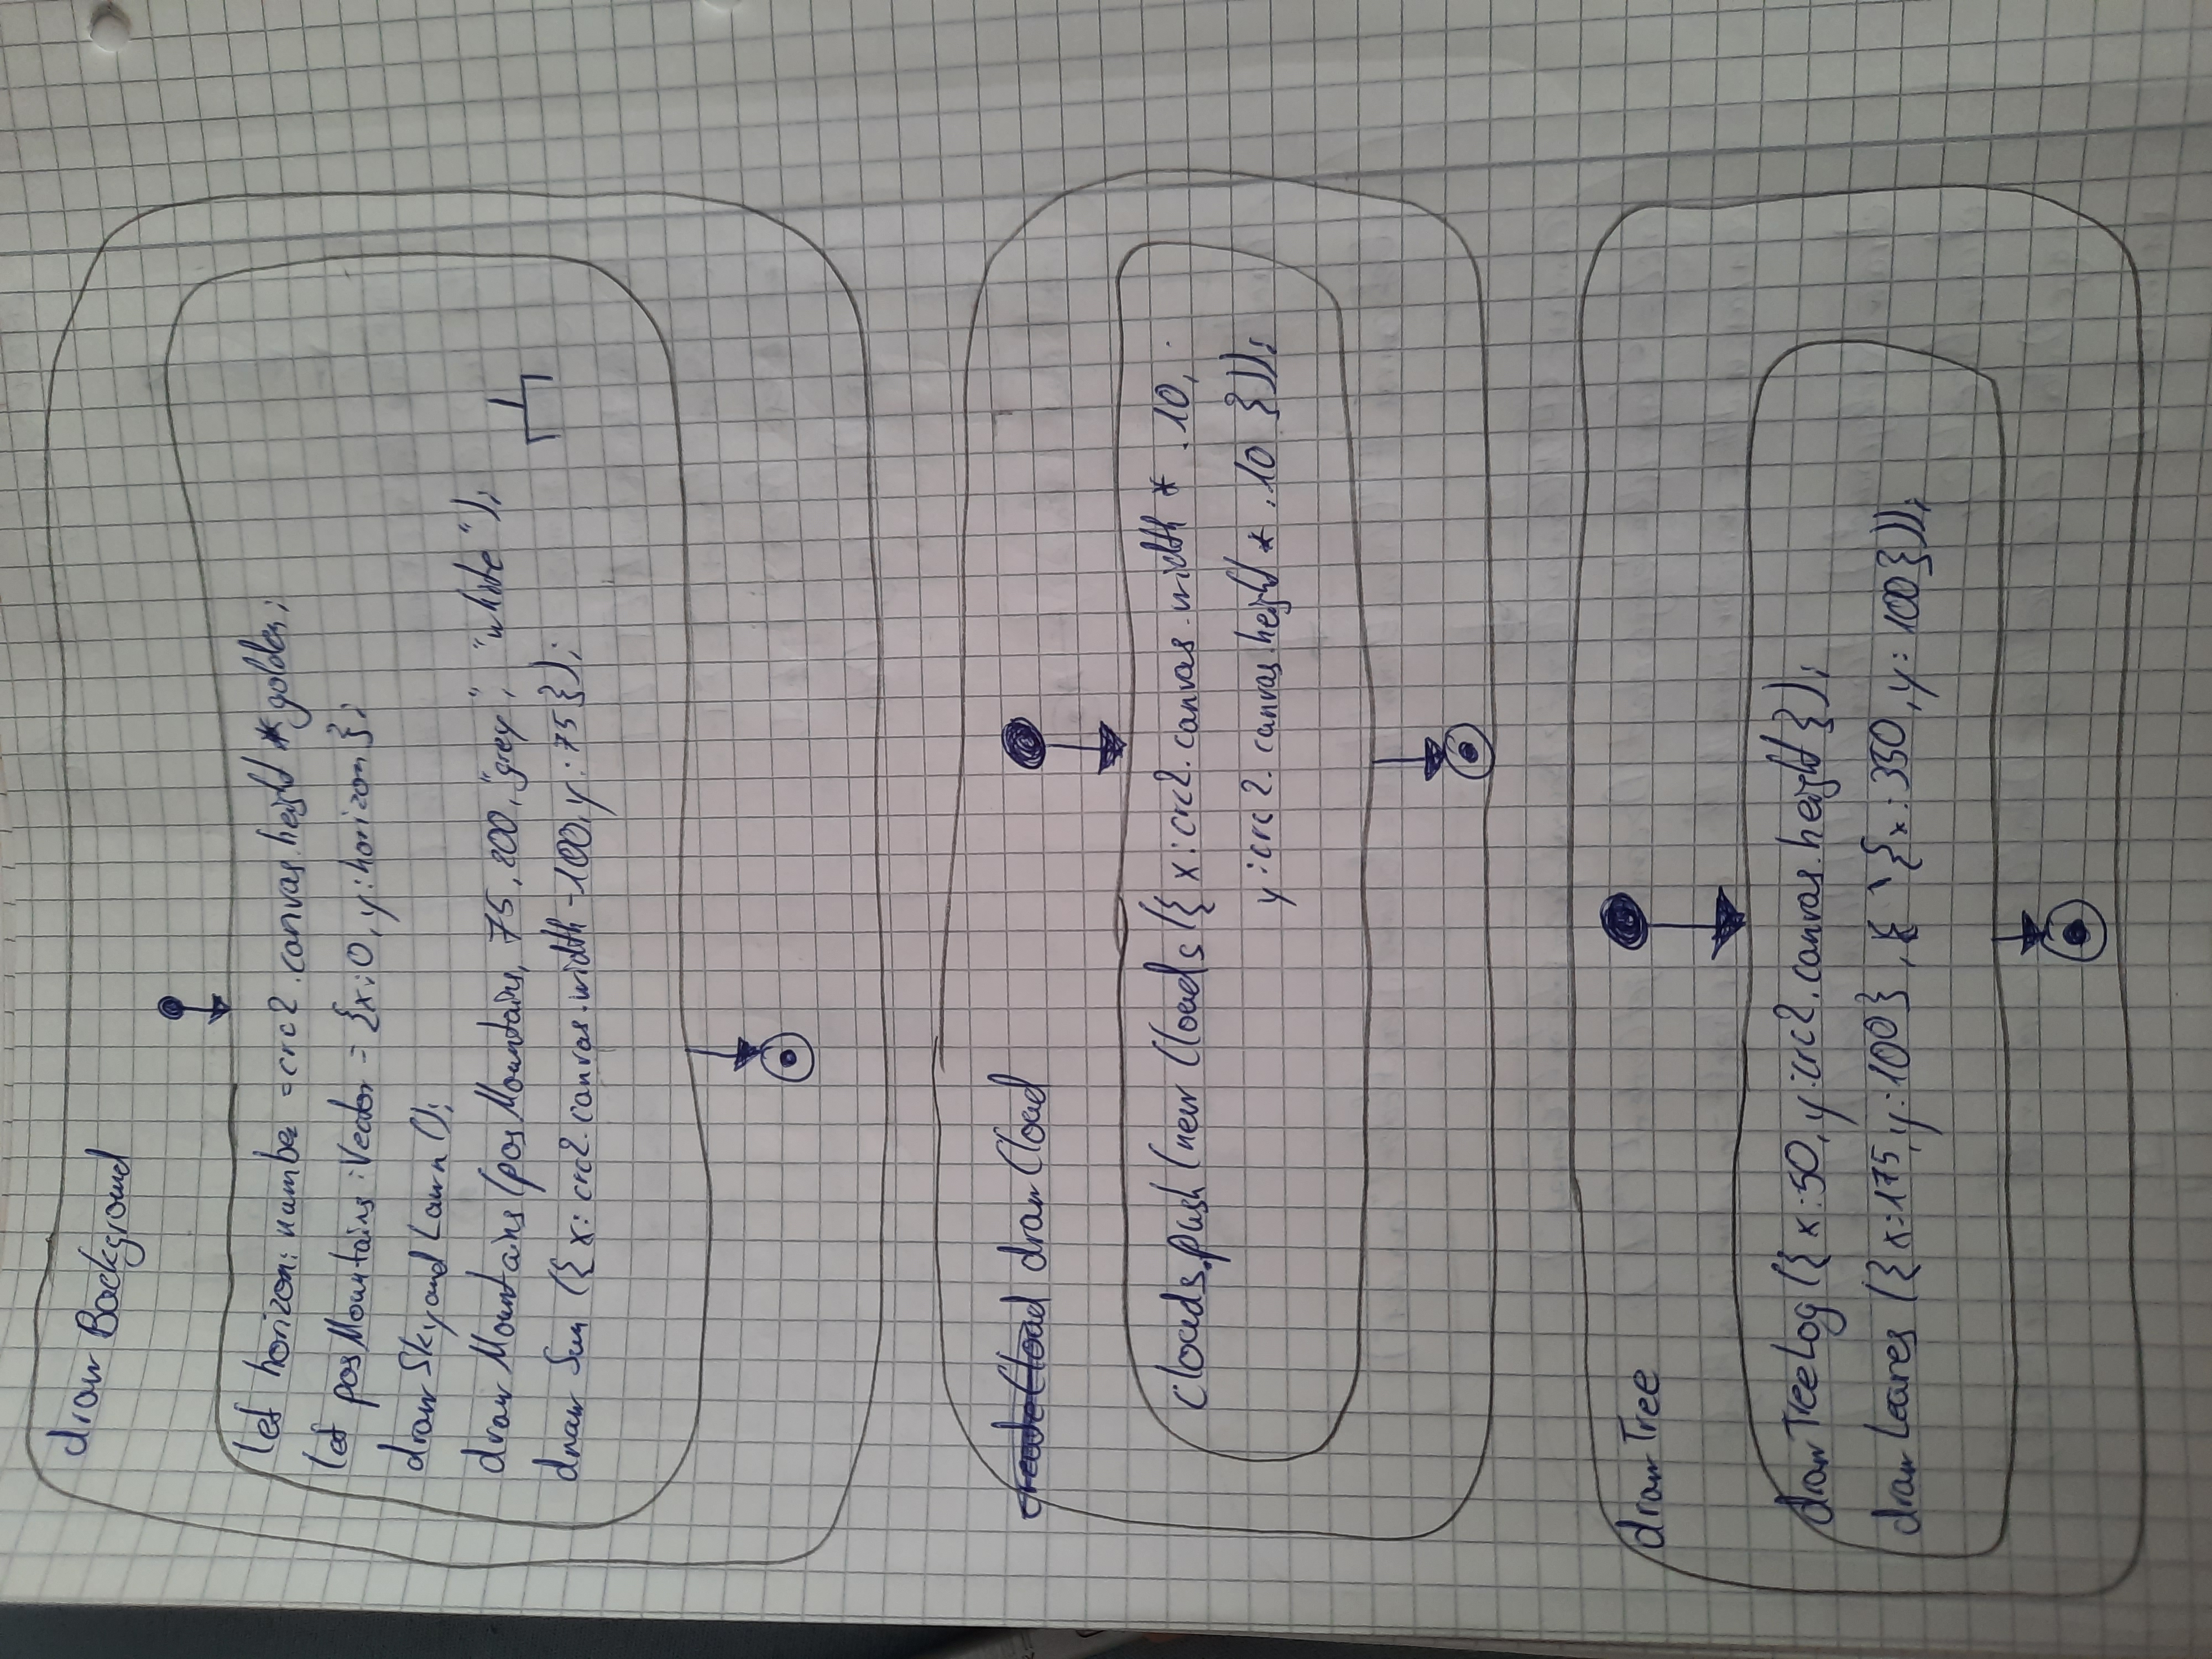 draw Background
let horizon: number = crc2.canvas.height * golden;
let posMountains: Vector = {x:0, y:horizon};
drawSkyandLawn();
drawMountains (posMountains, 75, 200, "grey", "white");
drawSun ({x: crc2.canvas.width - 100, y: 75});
createCloud drawCloud
clouds.push (new Clouds ({x: crc2.canvas.width * .10,
y: crc2.canvas.height * .10 }));
drawTree
drawTreeLog ({x:50, y:crc2.canvas.height});
drawLeaves ({x:175, y:100}, {x:350, y:100}));